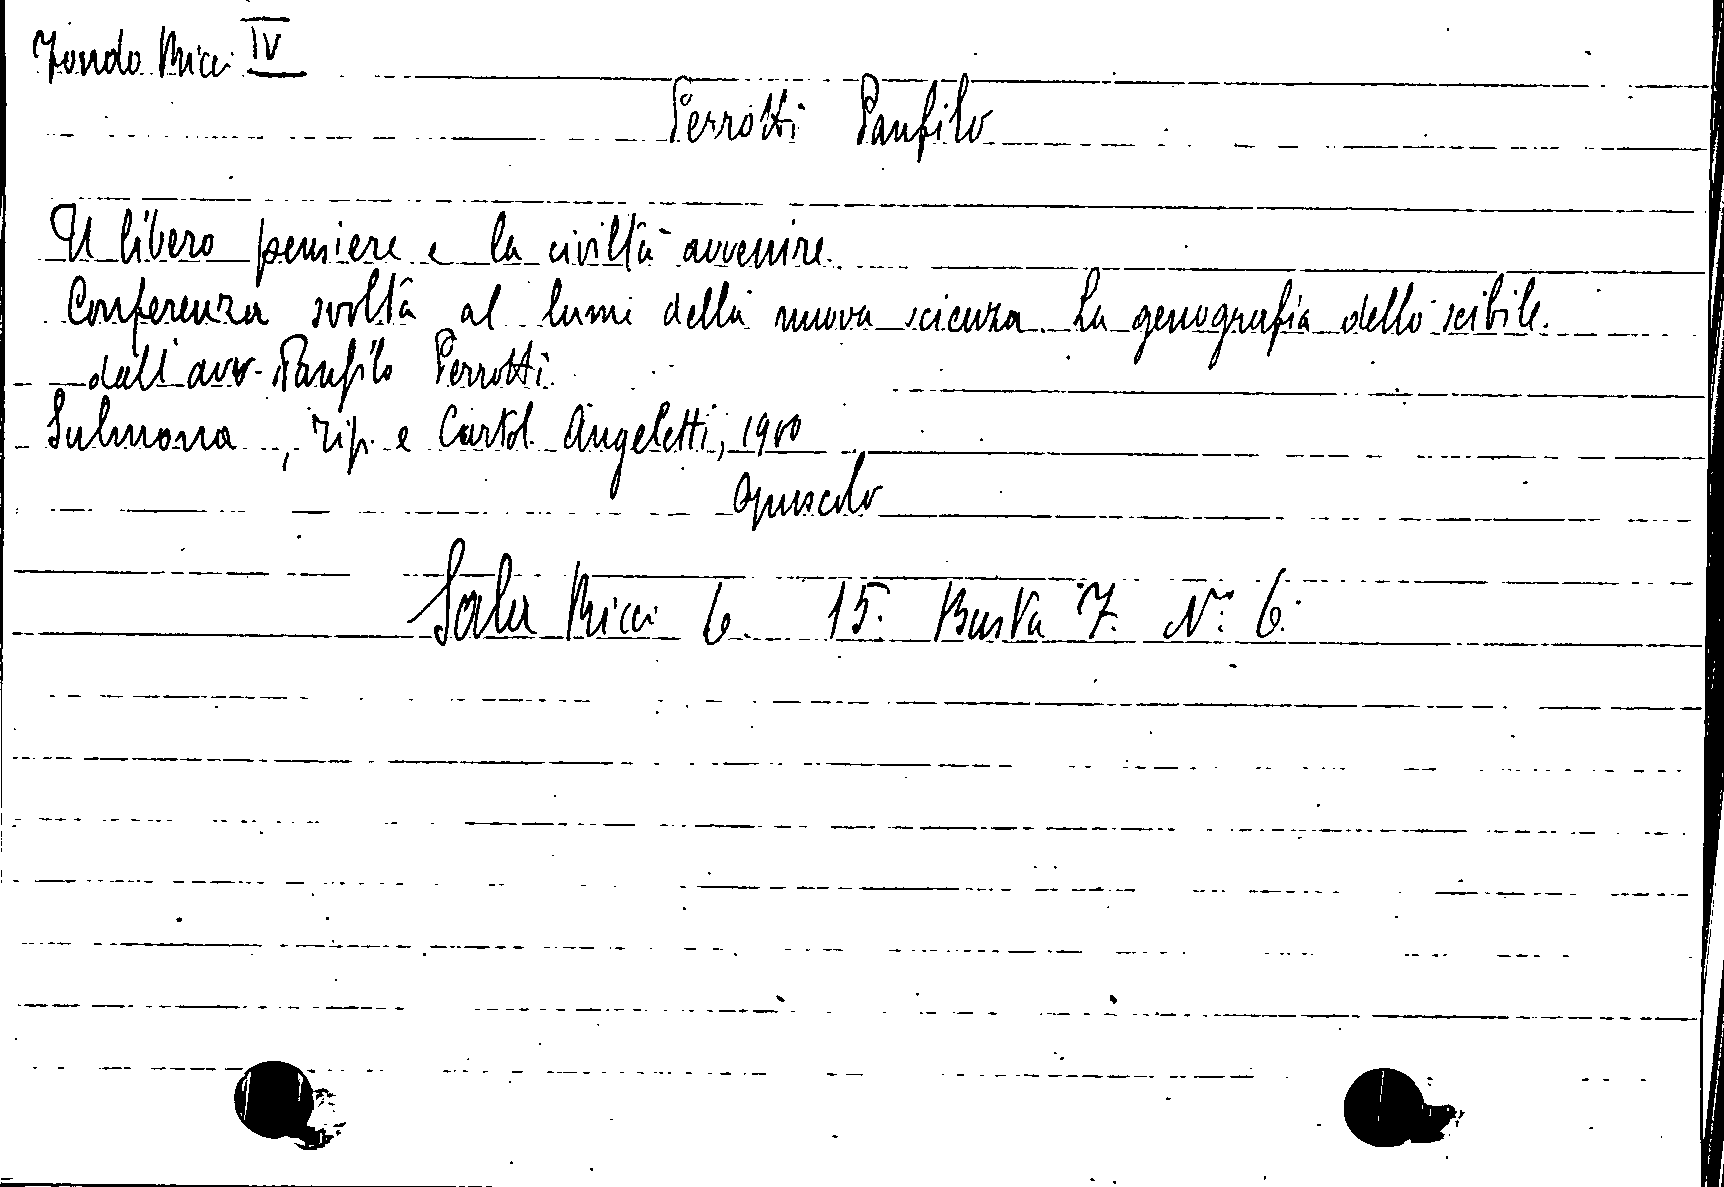 Fondo Ricci IV
Perrotti Panfilo
Il libero pensiere e la civiltà avvenire.
Conferenza svolta al lumi della nuova scienza. La genografia dello scibile.
dall'avv. Panfilo Perrotti
Sulmona, Tip. e Cartol. Angeletti, 1900
Opuscolo
Sala Ricci 6. 15. Busta 7. N° 6.